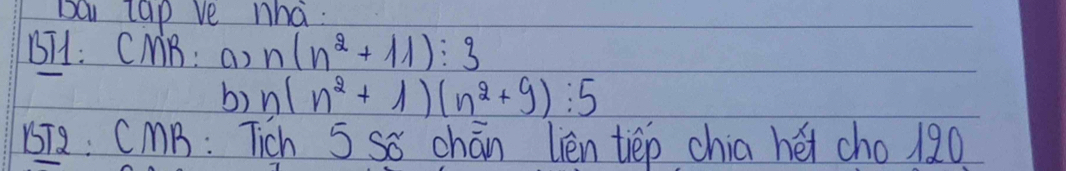 Bài tập về nhà:
BT1: CMR: a) n(n² + 11) ⋮ 3
b) n(n² + 1)(n² + 9) ⋮ 5
BT2: CMR: Tích 5 số chẵn liên tiếp chia hết cho 120